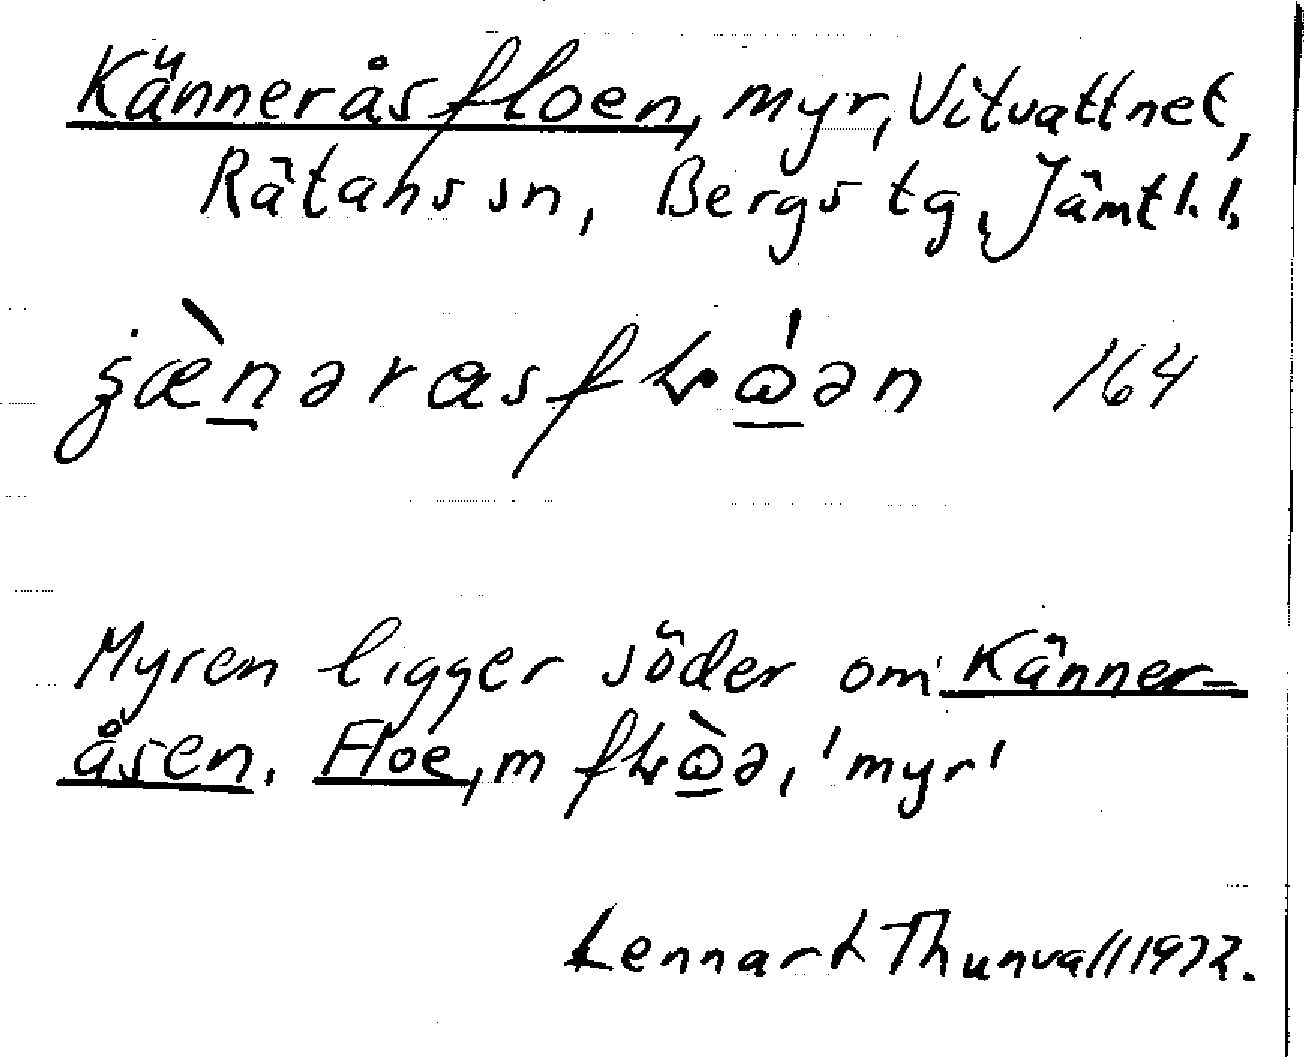 Känneråsfloen, myr, Vitvattnet,
Rätans sn, Bergs tg, Jämtl. l.
164
Myren ligger söder om Känner-
åsen. Floe, m 'myr'
Lennart Thunvall 1972.